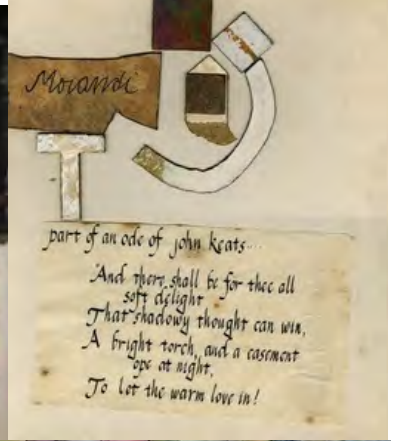 Morandi
part of an ode of john keats....
And there shall be for thee all
soft delight
That shadowy thought can win,
A bright torch, and a casement
ope at night,
To let the warm love in!